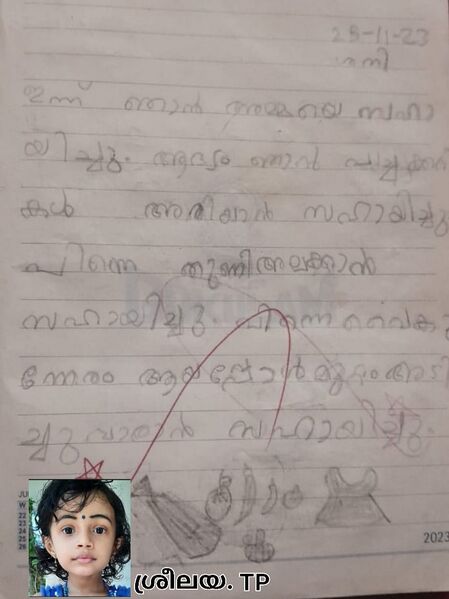 25-11-23
ശനി
ഇന്ന് ഞാൻ അമ്മയെ സഹാ
യിച്ചു. ആദ്യം ഞാൻ പച്ചക്കറി
കൾ അരിയാൻ സഹായിച്ചു
പിന്നെ തുണിഅലക്കാൻ
സഹായിച്ചു. പിന്നെ വൈകു
ന്നേരം ആയപ്പോൾ മുറ്റംഅടി
ച്ചുവാരാൻ സഹായിച്ചു.
JU
W
22
23
24
25
26
2023
ശ്രീലയ. TP